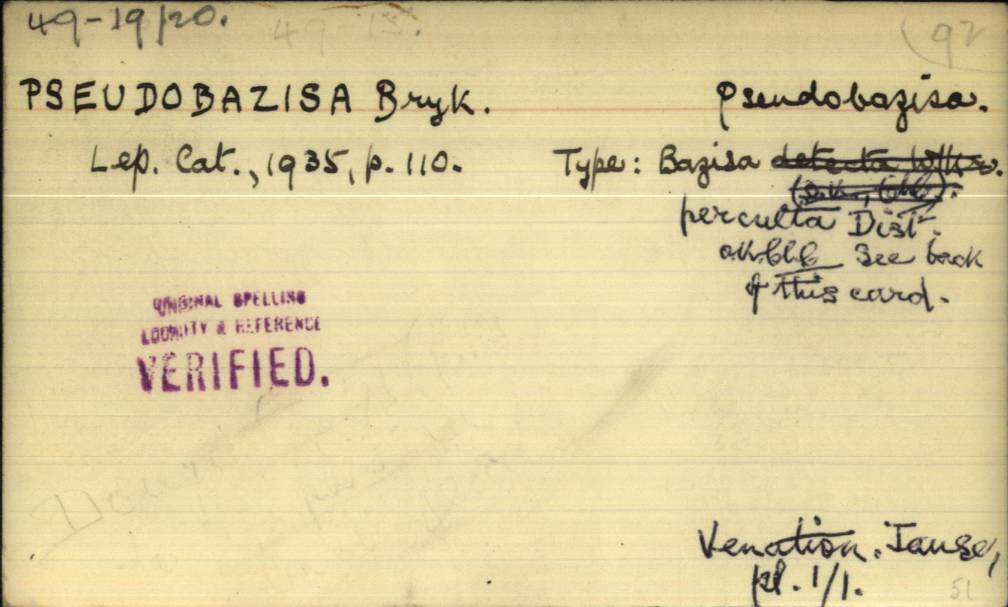 49-19/20.
49-1
(92
PSEUDOBAZISA Bryk.
Pseudobazisa.
Lep. Cat., 1935, p. 110.
Type: Bazisa detecta Wlk.
perculta Dist.
See back
of this card.
ORIGINAL SPELLING
LOCALITY & REFERENCE
VERIFIED.
Venation. Janse,
pl. 1/1.
51